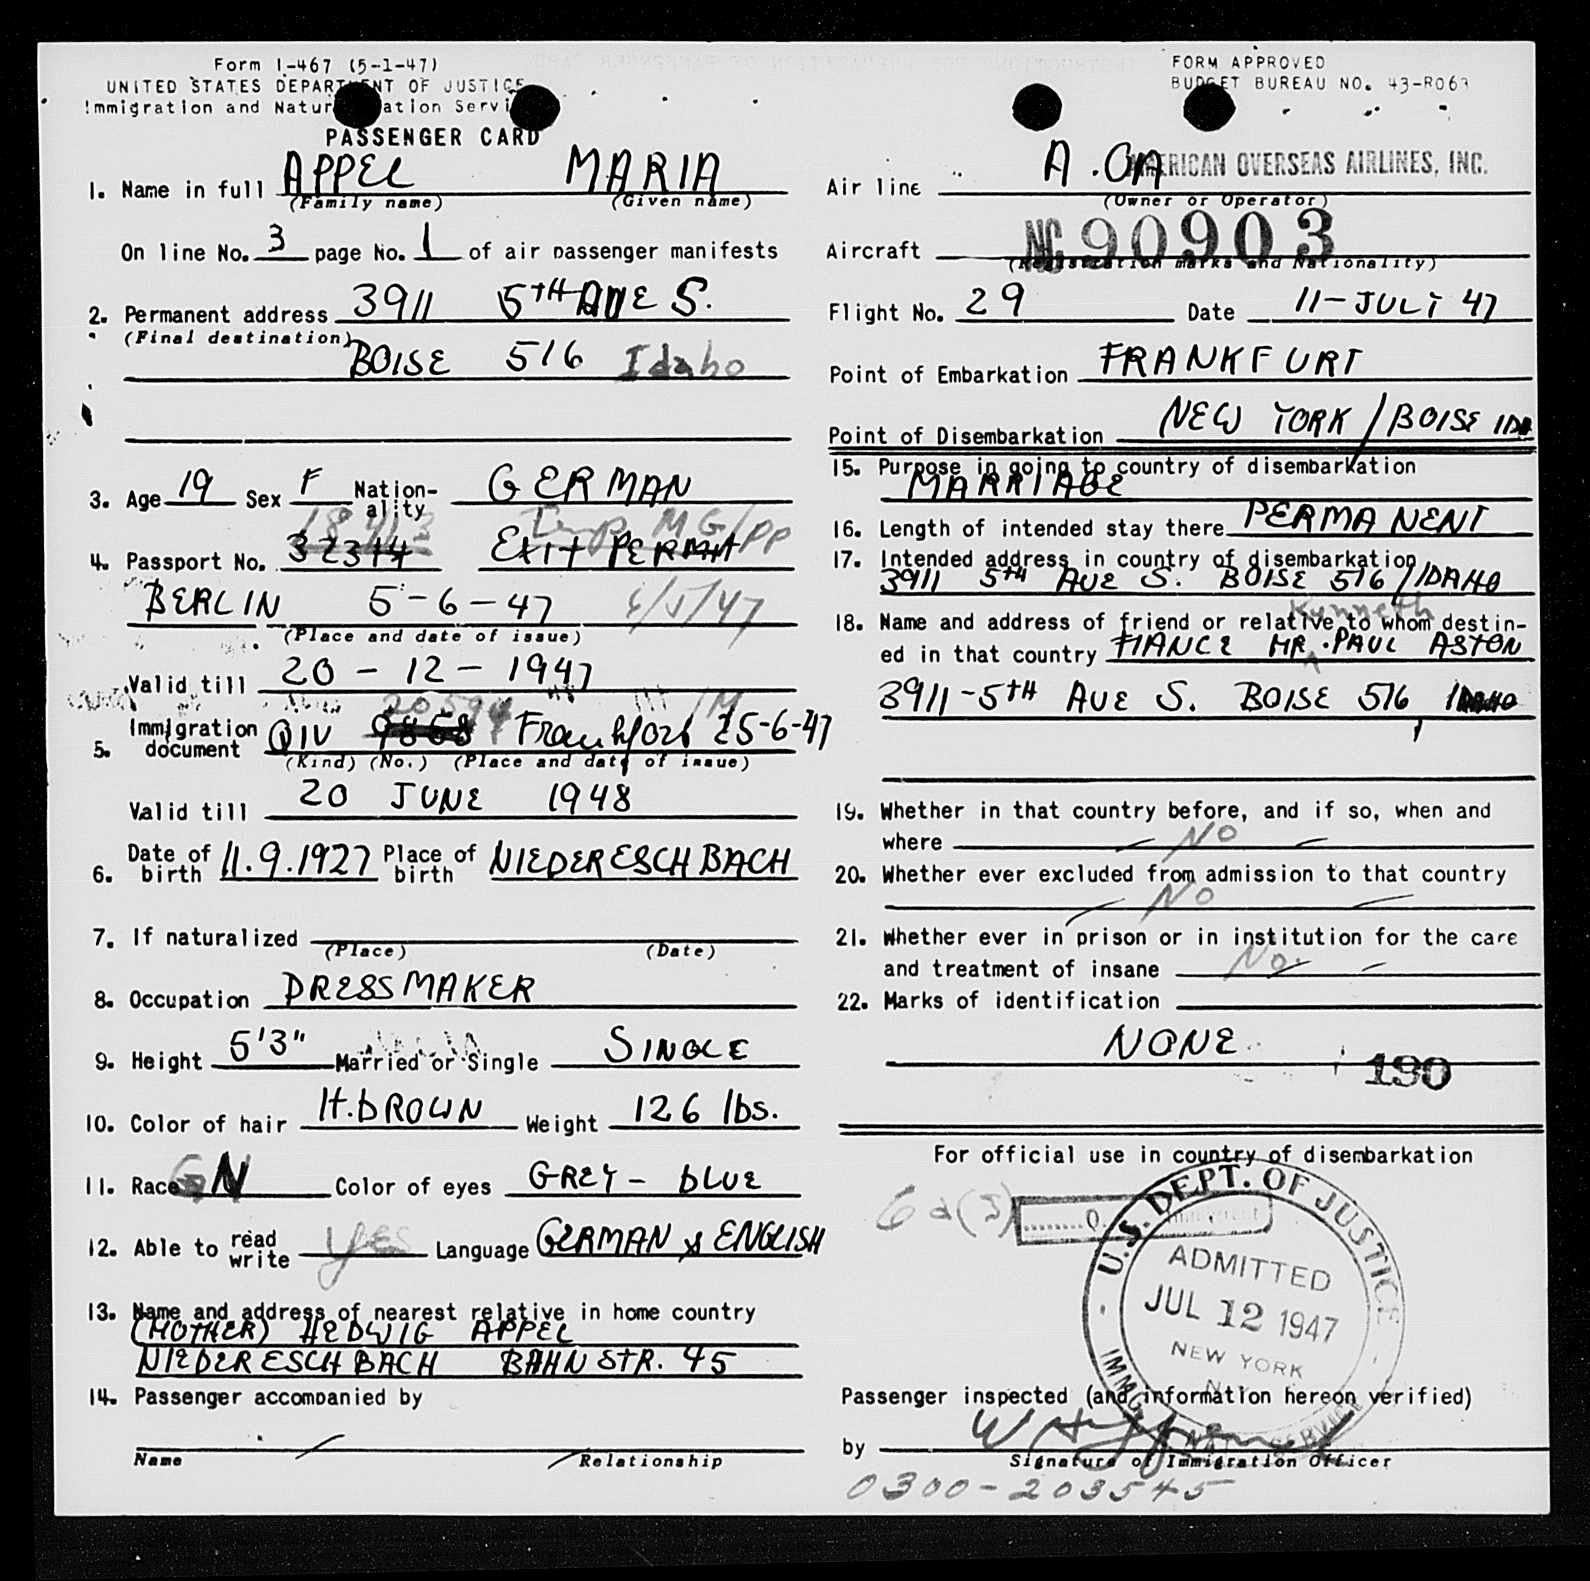 Form I-467 (5-1-47)
UNITED STATES DEPARTMENT OF JUSTICE
Immigration and Naturalization Service
PASSENGER CARD
1. Name in full APPEL MARIA
(Family name) (Given name)
On line No. 3 page No. 1 of air passenger manifests
2. Permanent address 3911 5TH AVE S.
(Final destination)
BOISE 516 Idaho
3. Age 19 Sex F Nation-ality GERMAN
4. Passport No. 32374 EXIT PERMIT
18413 Temp MG/PP
BERLIN 5-6-47 6/5/47
(Place and date of issue)
Valid till 20-12-1947
20594
5. Immigration document QIV 9868 Frankfort 25-6-47
(Kind) (No.) (Place and date of issue)
Valid till 20 JUNE 1948
6. Date of birth 11.9.1927 Place of birth NIEDERESCHBACH
7. If naturalized
(Place) (Date)
8. Occupation DRESSMAKER
9. Height 5'3" Married or Single SINGLE
10. Color of hair H.BROWN Weight 126 lbs.
11. Race Color of eyes GREY-BLUE
12. Able to read write yes Language GERMAN & ENGLISH
13. Name and address of nearest relative in home country
(MOTHER) HEDWIG APPEL
NIEDERESCHBACH BAHNSTR. 45
14. Passenger accompanied by
Name Relationship
FORM APPROVED
BUDGET BUREAU NO. 43-R063
Air line A.OA AMERICAN OVERSEAS AIRLINES, INC.
(Owner or Operator)
Aircraft NC 90903
(Registration marks and Nationality)
Flight No. 29 Date 11-JULY 47
Point of Embarkation FRANKFURT
Point of Disembarkation NEW YORK/BOISE IDA
15. Purpose in going to country of disembarkation
MARRIAGE
16. Length of intended stay there PERMANENT
17. Intended address in country of disembarkation
3911 5TH AVE S. BOISE 516/IDAHO
18. Name and address of friend or relative to whom destin-
Kynneth
ed in that country FIANCE MR. PAUL ASTON
3911-5TH AVE S. BOISE 516 IDAHO
19. Whether in that country before, and if so, when and
where No
20. Whether ever excluded from admission to that country
No
21. Whether ever in prison or in institution for the care
and treatment of insane No.
22. Marks of identification
NONE
190
For official use in country of disembarkation
U.S. DEPT. OF JUSTICE
ADMITTED
JUL 12 1947
NEW YORK
IMMIG. NAT. SERVICE
Passenger inspected (and information hereon verified)
by
Signature of Immigration Officer
0300-203545